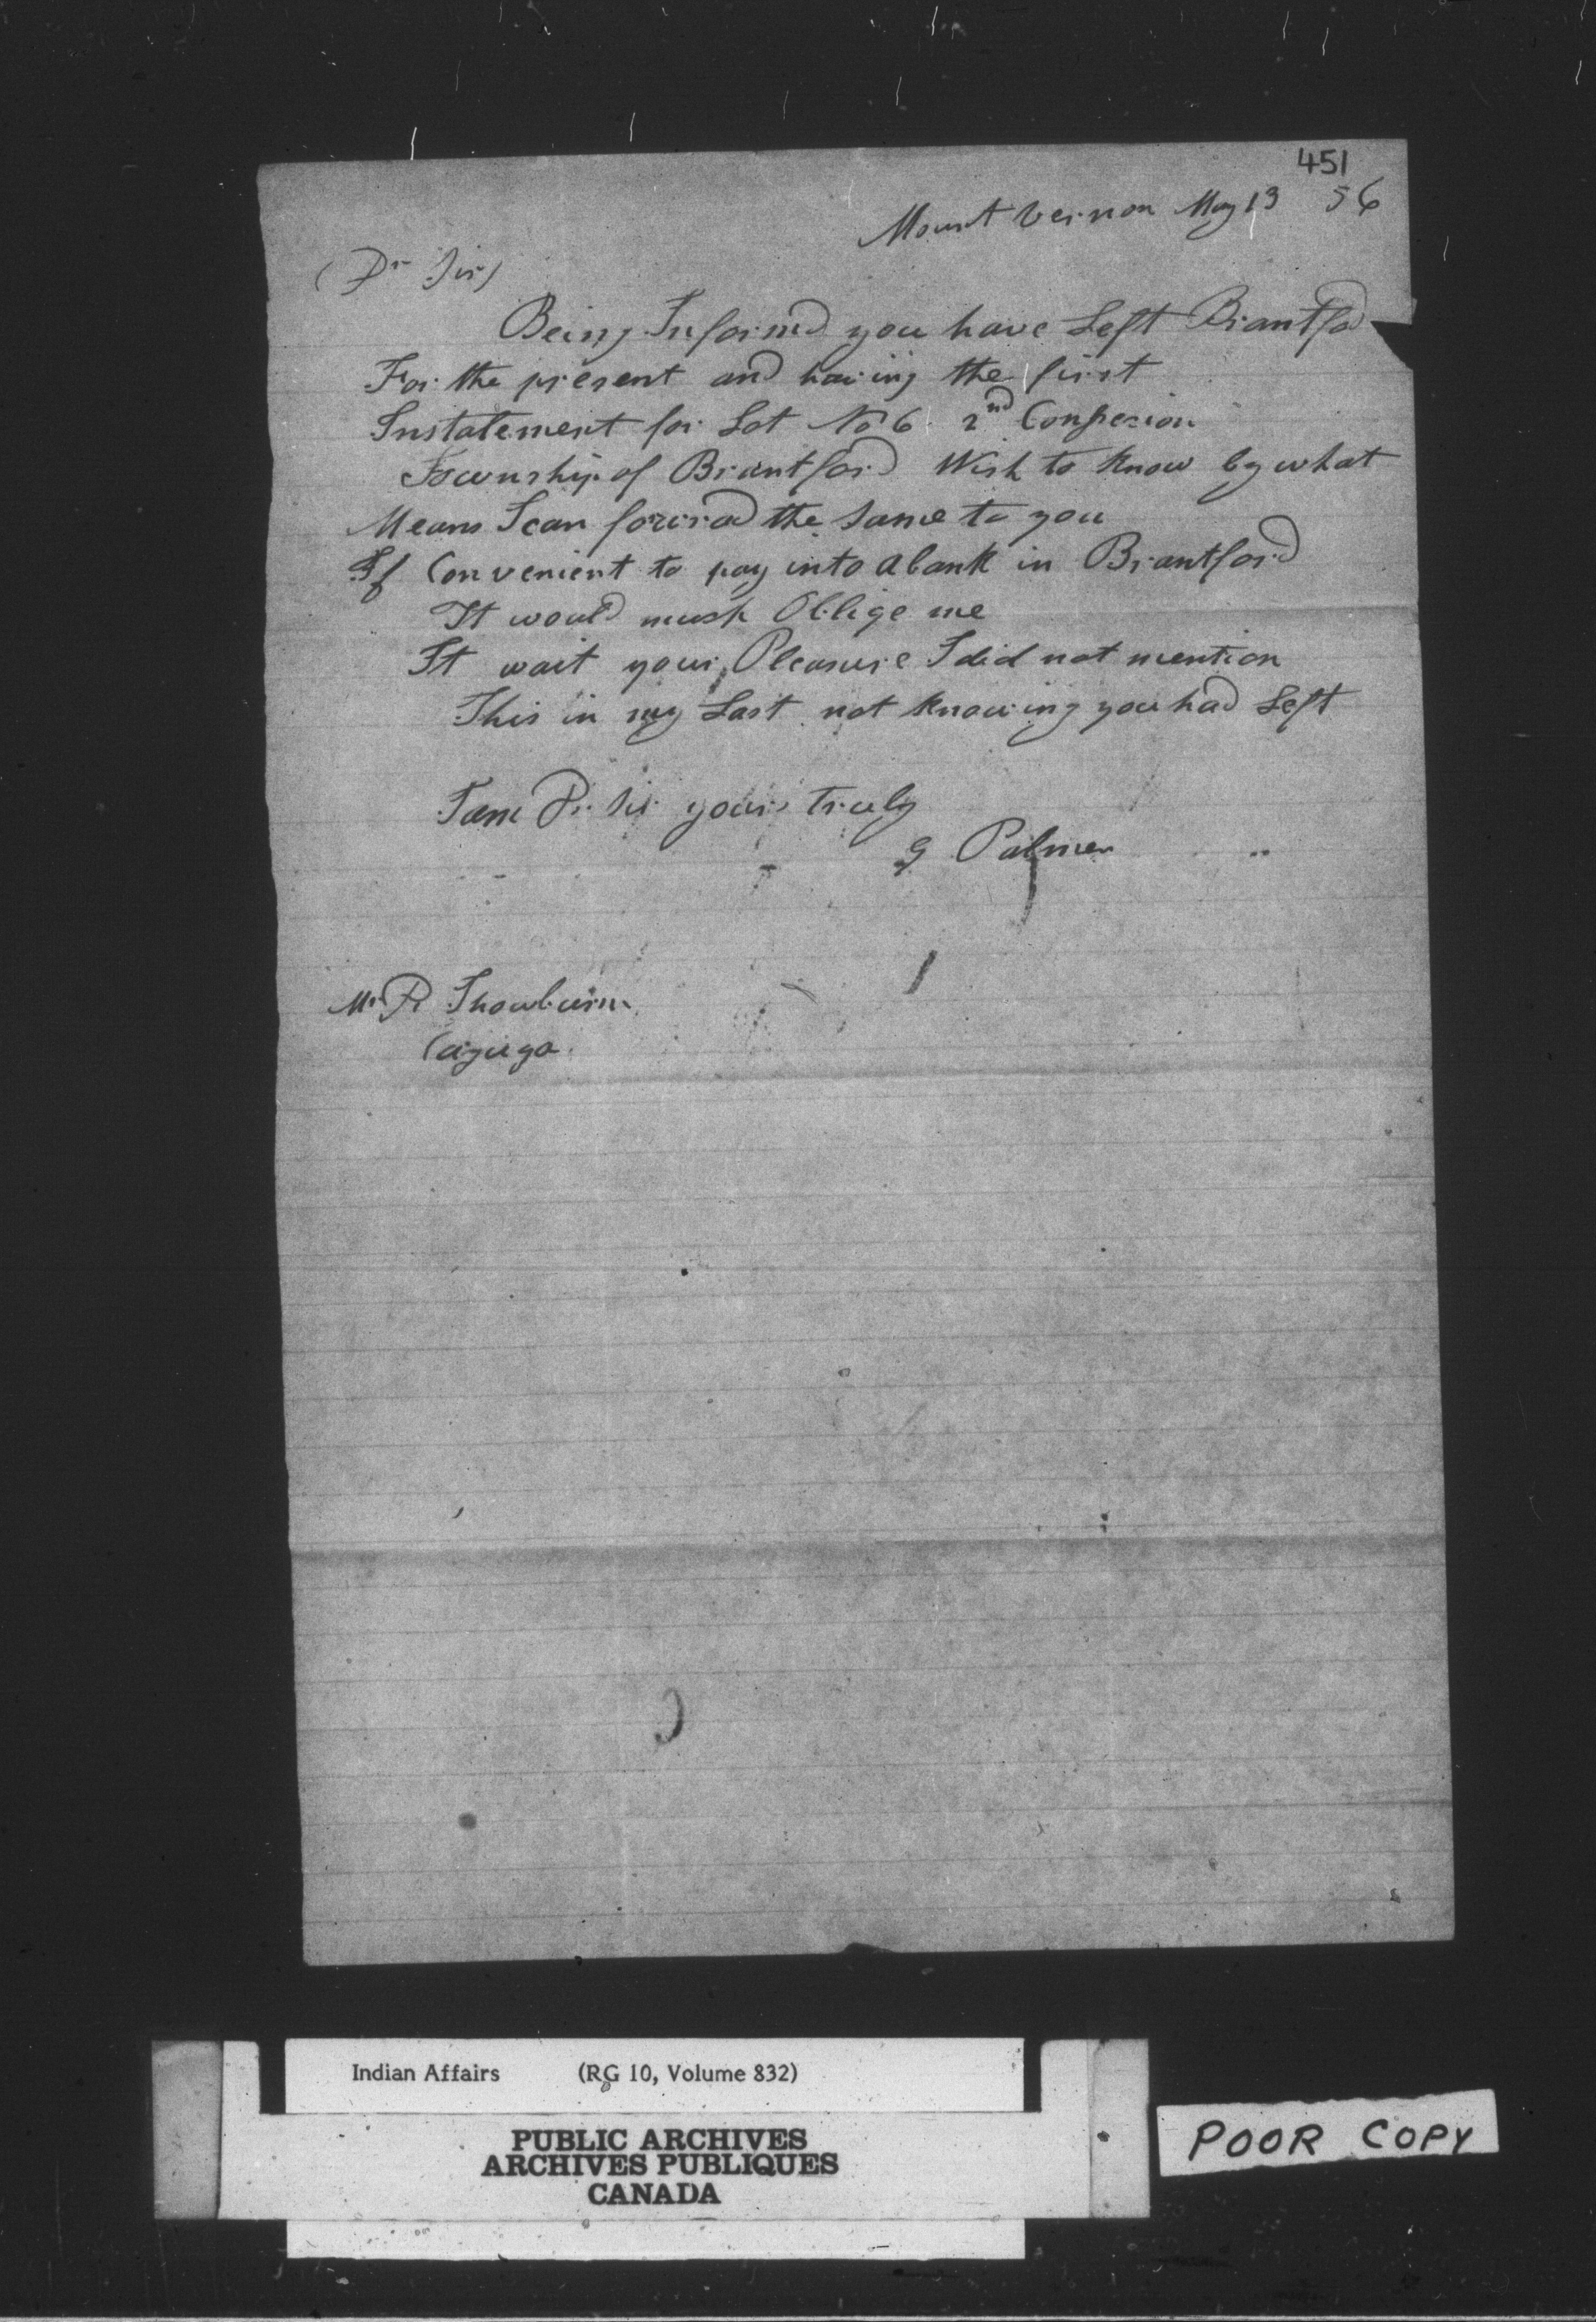 451
Mount Vernon May 13 56
(Dr Sir)
Being Informd you have Left Brantfod
For the present and having the first
Instalement for Lot No 6 2nd Consesion
Township of Brantford Wish to Know by what
Means I can forward the Same to you
If Convenient to pay into a bank in Brantford
It would much Oblige me
It wait your Pleasure I did not mention
This in my Last not Knowing you had Left
I am Dr Sir yours truly
G Palmer
Mr R
Cayuga
Indian Affairs (RG 10, Volume 832)
PUBLIC ARCHIVES
ARCHIVES PUBLIQUES
CANADA
POOR COPY